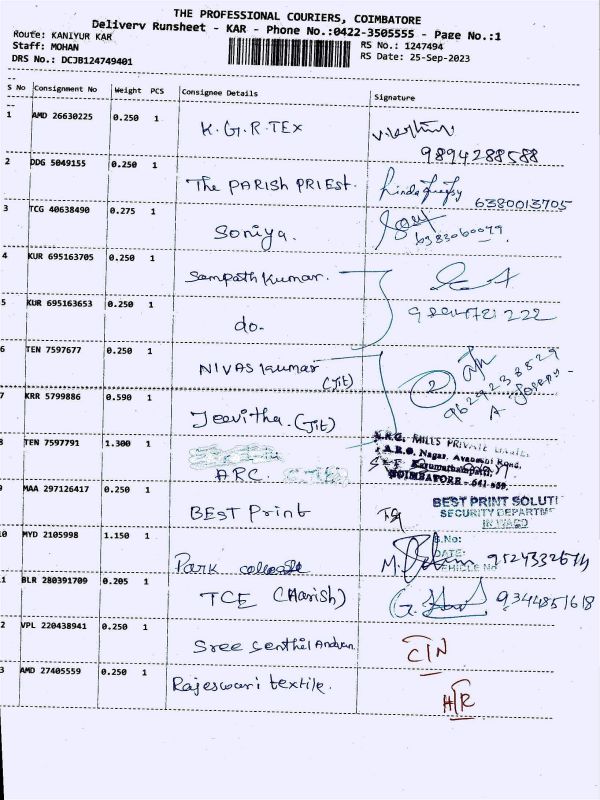 THE PROFESSIONAL COURIERS, COIMBATORE
Delivery Runsheet - KAR - Phone No.:0422-3505555 - Page No.:1
Route: KANIYUR KAR
RS No.: 1247494
Staff: MOHAN
RS Date: 25-Sep-2023
DRS No.: DCJB124749401
S No Consignment No Weight PCS Consignee Details Signature
1 AMD 26630225 0.250 1 K.G.R.TEX
9894288588
2 DDG 5049155 0.250 1 The PARISH PRIEST.
6380013705
3 TCG 40638490 0.275 1 Soniya.
6383060079
4 KUR 695163705 0.250 1 Sampath Kumar.
5 KUR 695163653 0.250 1 do.
6 TEN 7597677 0.250 1 NIVAS Kumar (Jit)
2
9629238529
A. Joseph
7 KRR 5799886 0.590 1 Jeevitha. (Jit)
8 TEN 7597791 1.300 1 ARC.
K.R.G. MILLS PRIVATE LIMITED,
A.R.O. Nagar, Avanashi Road,
Karumathampatti,
COIMBATORE - 641 659.
9 MAA 297126417 0.250 1 BEST Print
BEST PRINT SOLUTI
SECURITY DEPARTME
INWARD
10 MYD 2105998 1.150 1 Park college
S.No:
DATE:
VEHICLE No
M.
11 BLR 280391709 0.205 1 TCE (Harish)
9344851618
2 VPL 220438941 0.250 1 Sree Senthil Andven.
CTN
3 AMD 27405559 0.250 1 Rajeswari textile.